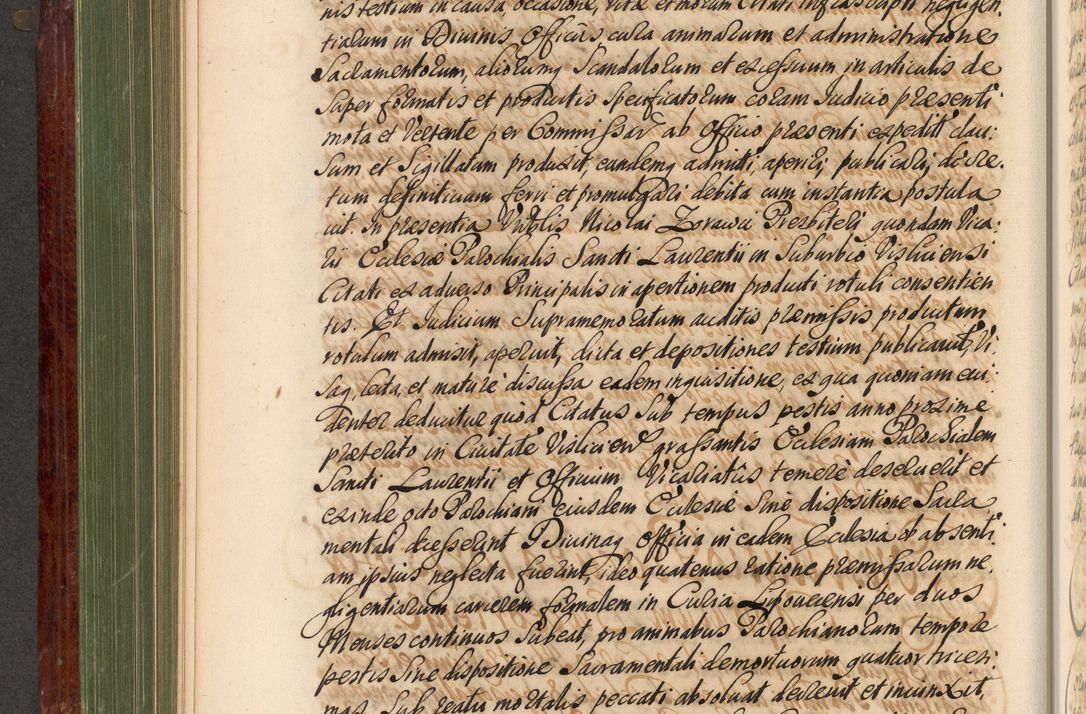 nis testium in causa, occasione, vitæ et morum Citati infrascripti negligen
tiarum in Divinis Officiis cura animarum et administratione
Sacramentorum, aliorumq Scandalorum et excessuum in articulis de
super formatis et productis specificatorum coram Judicio præsenti
mota et Vertente per Commissar ab Officio præsenti expedit clau:
sum et Sigillatum produxit, eundemq admitti, aperiri, publicari, decre:
tum definitivum ferri et promulgari debita cum instantia postula
vit. In præsentia Vrblis Nicolai Zorawic Presbiteri quondam Vica:
rii Ecclesiæ Parochialis Sancti Laurentii in Suburbio Visliciensi
Citati ex adverso Principalis in apertionem producti rotuli consentien
tis. Et Judicium Supramemoratum auditis præmissis productum
rotulum admisit, aperuit, dicta et depositiones testium publicavit, Vi
saq lecta, et mature discussa eadem inquisitione, ex qua quoniam evi:
denter deducitur quod Citatus Sub tempus pestis anno proxime
præterito in Civitate Vislicien grassantis Ecclesiam Parochialem
Sancti Laurentii et Officium Vicariatûs temere deseruerit et
exinde octo Parochiani eiusdem Ecclesiæ Sine dispositione Sacra
mentali decesserint Divinaq Officia in eadem Ecclesia ob absenti
am ipsius neglecta fuerint, ideo quatenus ratione præmissarum ne,
gligentiarum carcerem formalem in Curia Lipoviecensi per duos
Menses continuos Subeat, pro animabus Parochianorum tempore
pestis Sine dispositione Sacramentali demortuorum quatuor tricesi:
mas Sub reatu mortalis peccati absolvat decrevit et iniunxit,